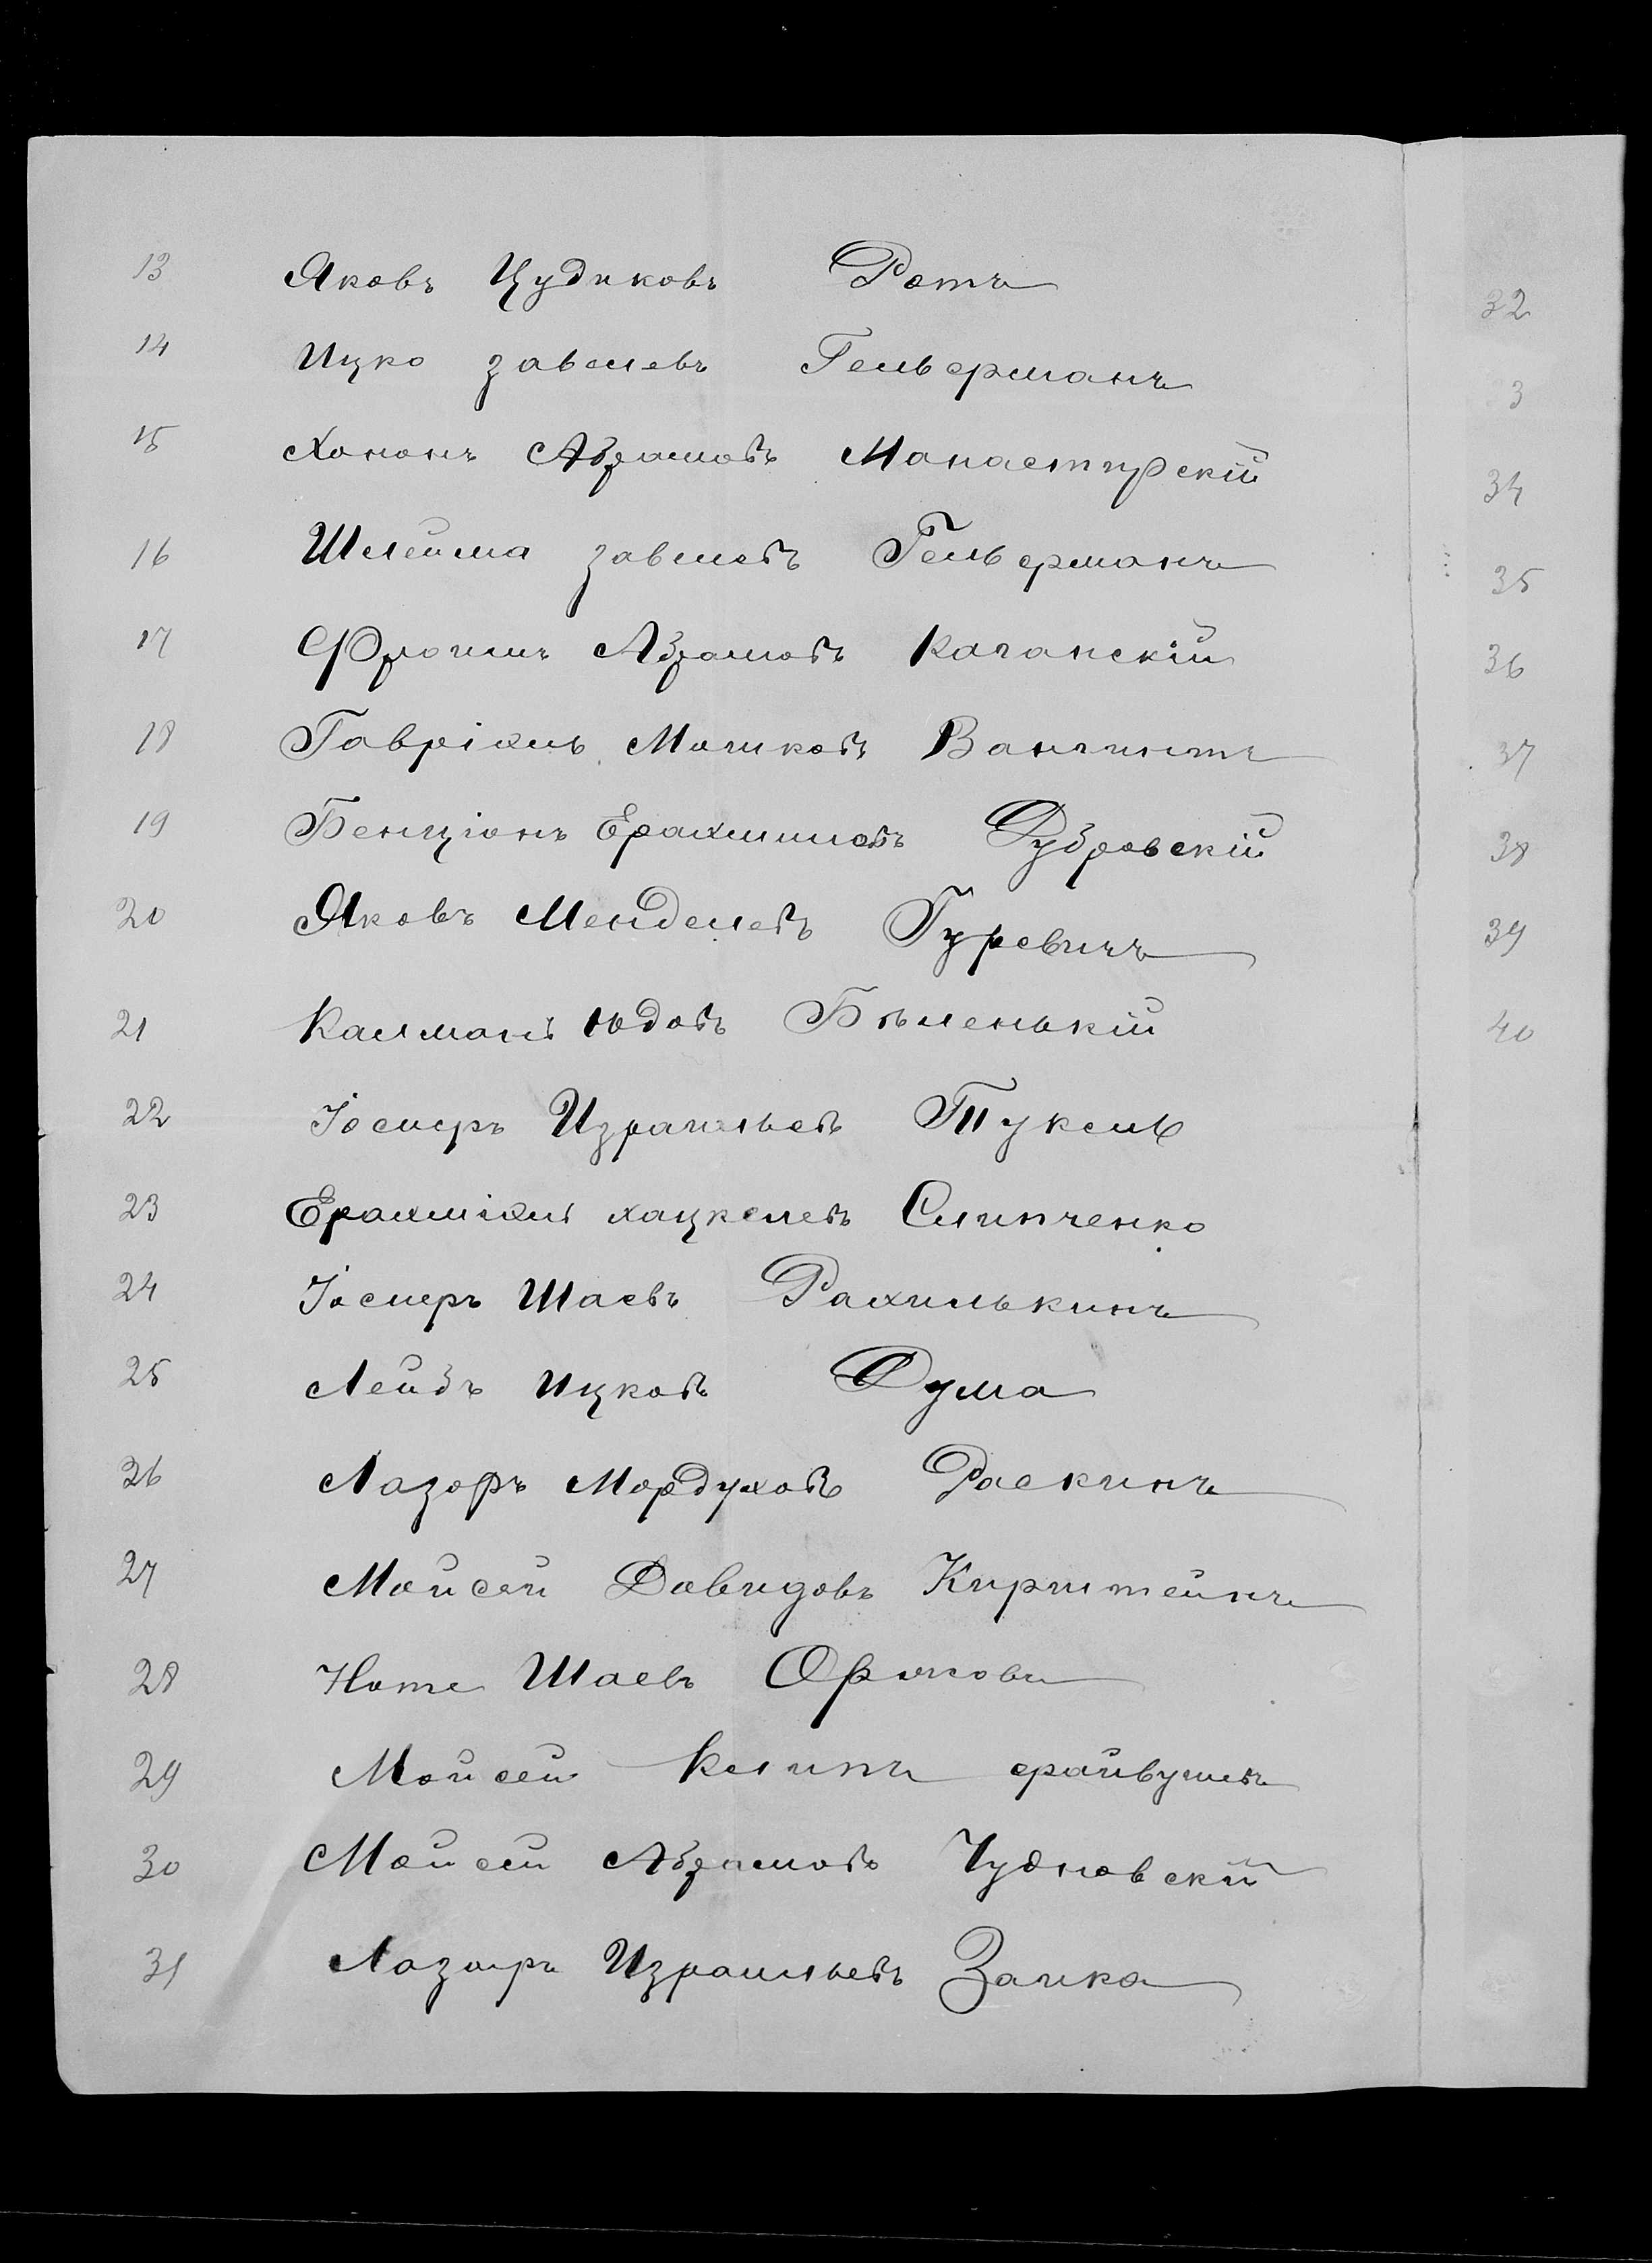 13 Яковъ Цудиковъ Ротъ
14 Ицко завелевъ Гельферманъ
15 Хононъ Абрамовъ Манастырскій
16 Шлейма завелевъ Гельферманъ
17 Фроимъ Абрамовъ Каганскій
18 Гавріилъ Мошковъ Вайнгинтъ
19 Бенціонъ Ерахмилевъ Дубровскій
20 Яковъ Менделевъ Гуревичъ
21 Калманъ Юдовъ Бѣленькій
22 Іосифъ Израильевъ Тукель
23 Ерахміилъ хацкелевъ Слипченко
24 Іосифъ Шаевъ Рахилькинъ
25 Лейбъ Ицковъ Дума
26 Лазоръ Мордуховъ Раскинъ
27 Мойсей Давидовъ Кирштейнъ
28 Ноте Шаевъ Орловъ
29 Мойсей Клипъ
30 Мойсей Абрамовъ Чудновскій
31 Лазаръ Израильевъ Заика
32
3
34
35
36
37
38
39
40